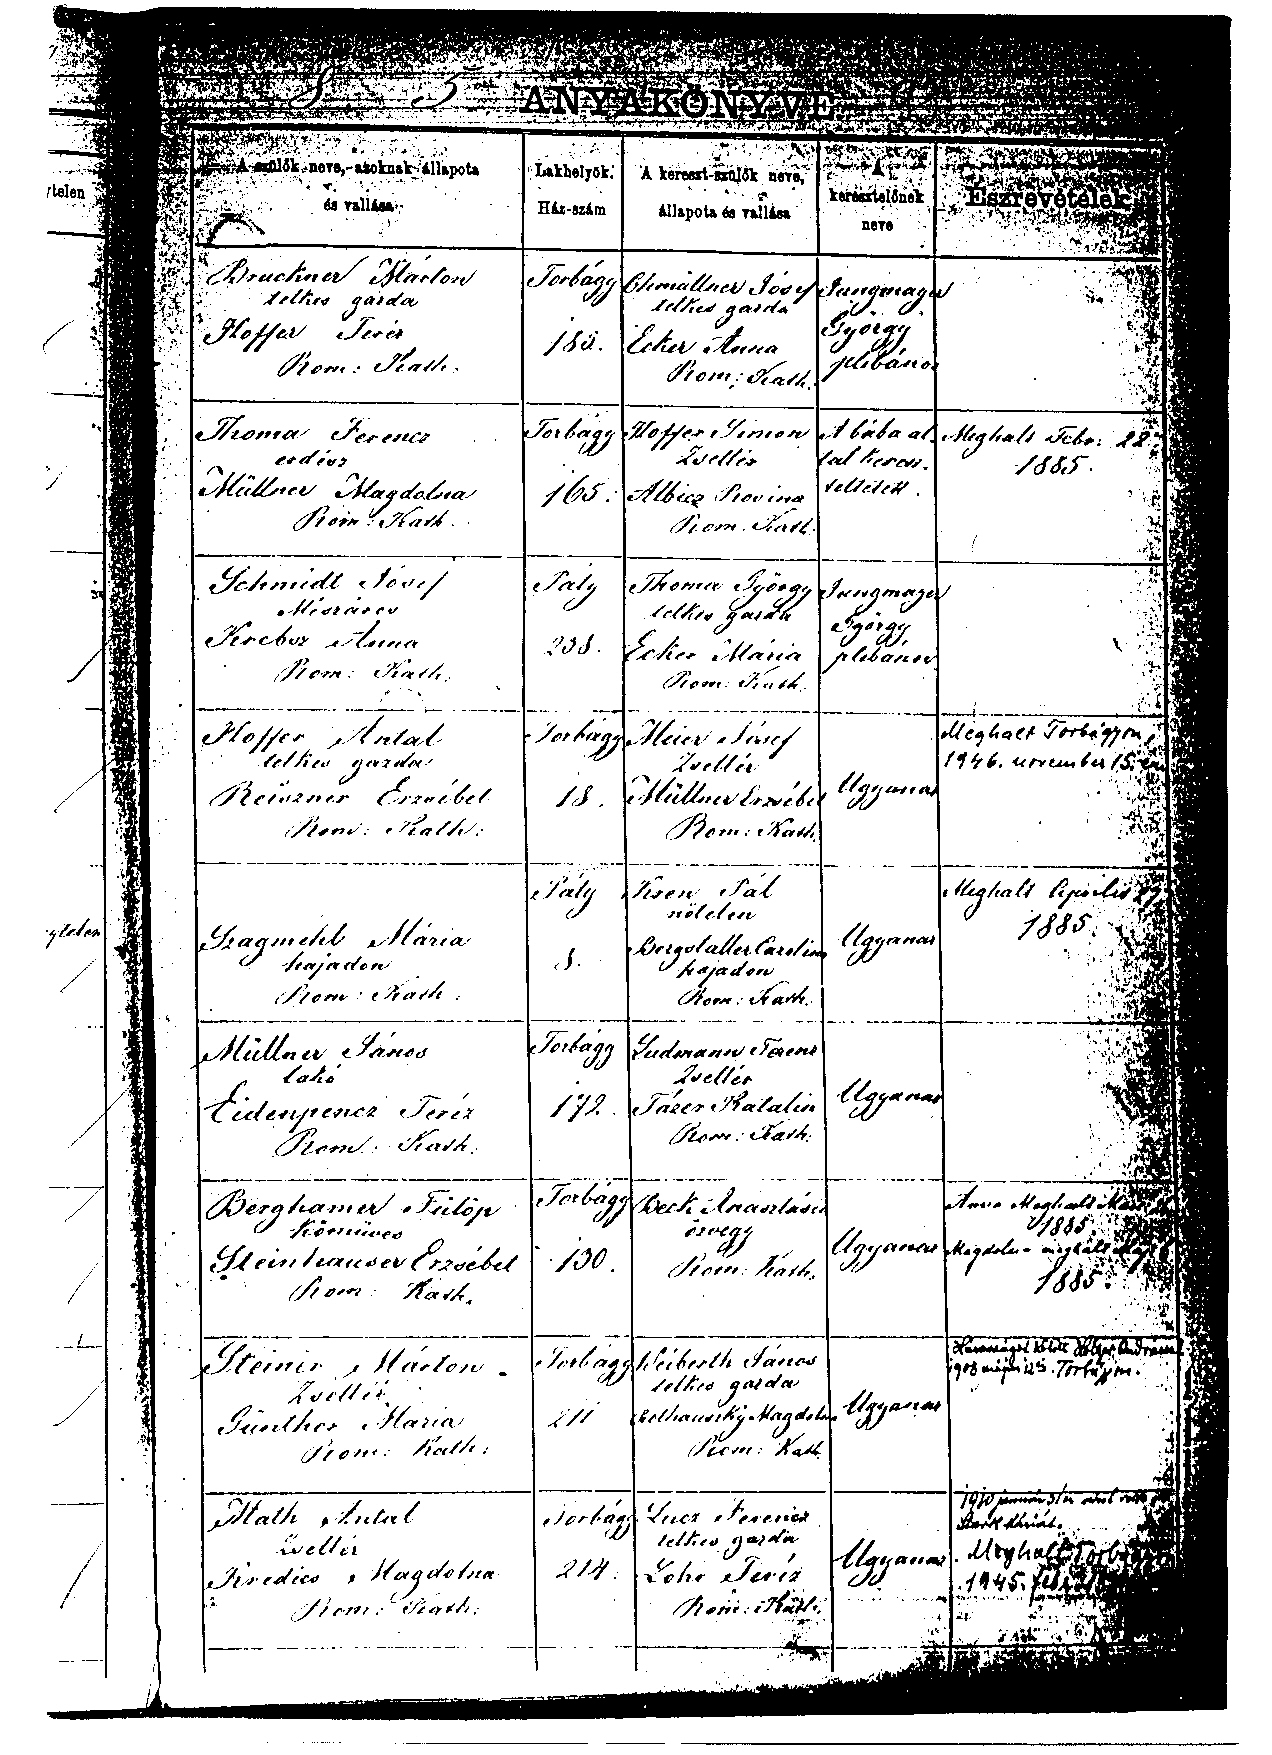 8 5
ANYAKÖNYVE
A szülők neve, azoknak állapota
és vallása
Lakhelyök.
Ház-szám
A kereszt-szülők neve,
állapota és vallása
A
keresztelőnek
neve
Észrevételek
ytelen
Bruckner Márton
telkes gazda
Hoffer Teréz
Rom: Kath.
Torbágy
183.
Chmüllner Jósef
telkes gazda
Ecker Anna
Rom: Kath.
Jungmayer
György
plébános
Thoma Ferencz
erdész
Müllner Magdolna
Rom: Kath.
Torbágy
165.
Hoffer Simon
Zsellér
Albicz Rovina
Rom. Kath.
A bába ál-
tal keresz-
teltetett.
Meghalt Febr. 22.
1885.
Schmidt Jósef
Mészáros
Krebsz Anna
Rom: Kath.
Páty
238.
Thoma György
telkes gazda
Ecker Mária
Rom: Kath.
Jungmayer
György
plébános
Hoffer Antal
telkes gazda
Reiszner Erzsébet
Rom: Kath:
Torbágy
18.
Meier Jósef
Zsellér
Müllner Erzsébet
Rom: Kath.
Ugyanaz
Meghalt Torbágyon,
1946. november 15.-én
Szagmehl Mária
hajadon
Rom: Kath.
Páty
8.
Pál
nőtelen
Bergstaller Carolina
hajadon
Rom: Kath.
Ugyanaz
Meghalt Április 27.
1885.
ytelen
Müllner János
lakó
Eidenpencz Teréz
Rom: Kath.
Torbágy
172.
Ludmann Ferenc
Zsellér
Fázer Katalin
Rom: Kath.
Ugyanaz
Berghamer Fülöp
Kőmüves
Steinhauser Erzsébet
Rom: Kath.
Torbágy
130.
Beck Anasztásia
özvegy
Rom: Kath.
Ugyanaz
Anna Meghalt
1885.
Magdolna meghalt
1885.
Steiner Márton
Zsellér
Günther Mária
Rom: Kath:
Torbágy
211
Weiberth János
telkes gazda
Magdolna
Rom: Kath.
Ugyanaz
Házasságot kötött András
1908 május 12 Torbágyon.
Math Antal
Zsellér
Kredics Magdolna
Rom: Kath:
Torbágy
214.
Lucz Ferencz
telkes gazda
Lohr Teréz
Rom: Kath.
Ugyanaz
1910 január
Stark
Meghalt Torbágyon
1945.